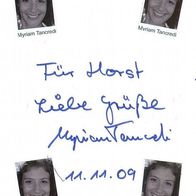 Myriam Tancredi
Myriam Tancredi
Für Horst
Liebe Grüße
Myriam Tancredi
11.11.09